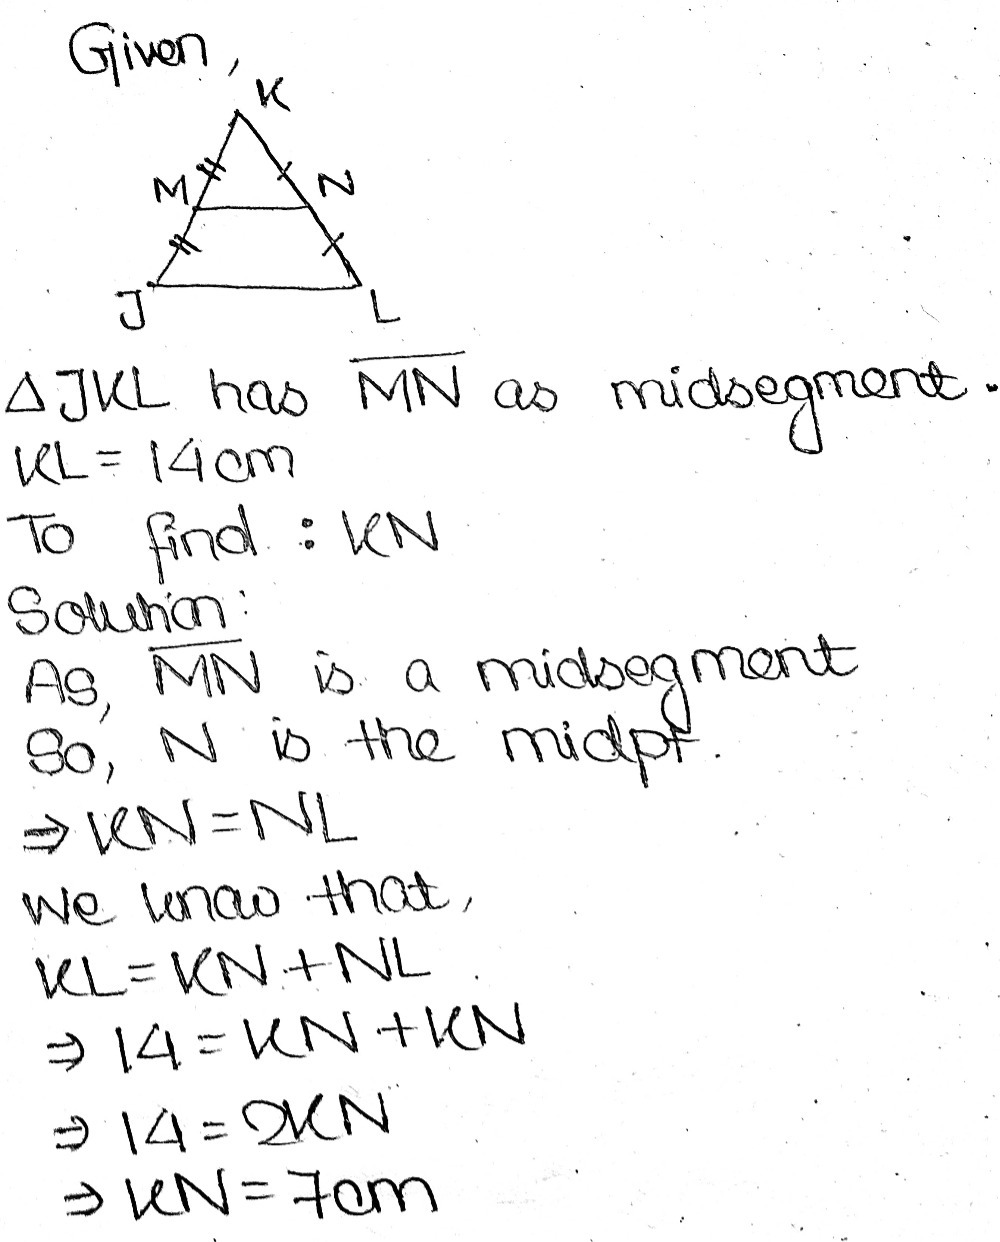 Given,
K
M N
J L
△JKL has M̅N̅ as midsegment.
KL = 14cm
To find : KN
Solution:
As, M̅N̅ is a midsegment
So, N is the midpt.
⇒ KN = NL
We know that,
KL = KN + NL
⇒ 14 = KN + KN
⇒ 14 = 2KN
⇒ KN = 7cm